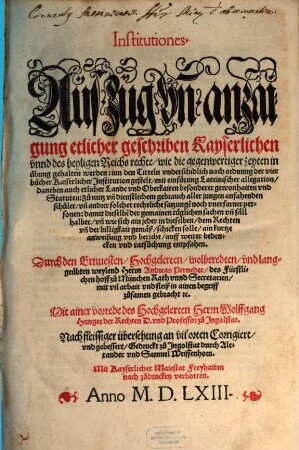 Institutiones.
Auszug vñ anzai
gung etlicher geschriben Kayserlichen
vnnd des heyligen Reichs rechte/ wie die gegenwertiger zeyten in
übung gehalten werden: inn den Titteln vnderschidlich nach ordnung der vier
bücher Kaiserlicher Institution gestelt/ mit einfürung Lateinischer allegation/
Daneben auch etlicher Lande vnd Oberkaiten besonderer gewonhaiten vnd
Statuten: Zů nutz vñ dienstlichem gebrauch aller jungen anfahenden
schüler/ vñ ander solcher rechtliche satzunge noch vnerfarner per-
sonen: damit dieselbẽ der gemainen täglichen sachen vñ fäll
halb/ vñ wie sich ain jeder in dieselben/ dem Rechten
vñ der billigkait gemäß/ schicken solle/ ain kurtze
anweisung vnd bericht/ auff weiter beden-
cken vnd ratschlachung empfahen.
Durch den Ernuesten/ Hochgelerten/ wolberedten/ vnd lang-
geübten weylend Herrn Andreas Perneder/ des Fürstli-
chen hoff zů München Rath vnnd Secretarien/
mit vil arbait vnd fleiß in ainen begriff
zůsamen gebracht ꝛc.
Mit ainer vorrede des Hochgelerten Herrn Wolffgang
Hunger der Rechten D. vnd Professor zů Ingolstat.
Nach fleissiger übersehung an vil orten Corrigiert/
vnd gebessert/ Gedruckt zů Ingolstat durch Ale-
xander vnd Samuel Weissenhorn.
Mit Kayserlicher Maiestat Freyhaiten
nach zůdrucken verbotten.
Anno M. D. LXIII.